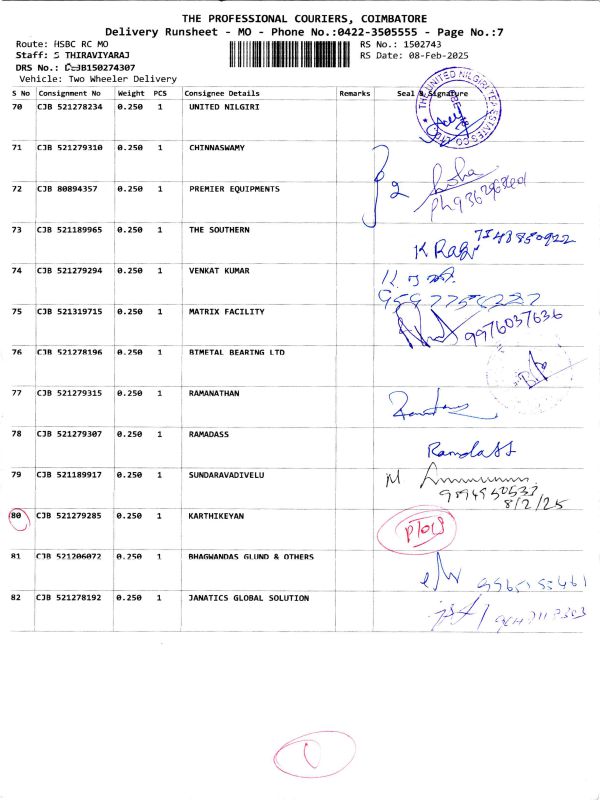 THE PROFESSIONAL COURIERS, COIMBATORE
Delivery Runsheet - MO - Phone No.:0422-3505555 - Page No.:7
Route: HSBC RC MO
RS No.: 1502743
Staff: S THIRAVIYARAJ
RS Date: 08-Feb-2025
DRS No.: CJB150274307
Vehicle: Two Wheeler Delivery
S No Consignment No Weight PCS Consignee Details Remarks Seal & Signature
70 CJB 521278234 0.250 1 UNITED NILGIRI
THE UNITED NILGIRI TEA ESTATES CO. LTD.
71 CJB 521279310 0.250 1 CHINNASWAMY
72 CJB 80894357 0.250 1 PREMIER EQUIPMENTS
73 CJB 521189965 0.250 1 THE SOUTHERN
K Ragu 7548850922
74 CJB 521279294 0.250 1 VENKAT KUMAR
75 CJB 521319715 0.250 1 MATRIX FACILITY
9976037636
76 CJB 521278196 0.250 1 BIMETAL BEARING LTD
77 CJB 521279315 0.250 1 RAMANATHAN
78 CJB 521279307 0.250 1 RAMADASS
Ramdass
79 CJB 521189917 0.250 1 SUNDARAVADIVELU
M
8/2/25
80 CJB 521279285 0.250 1 KARTHIKEYAN
81 CJB 521206072 0.250 1 BHAGWANDAS GLUND & OTHERS
82 CJB 521278192 0.250 1 JANATICS GLOBAL SOLUTION
1